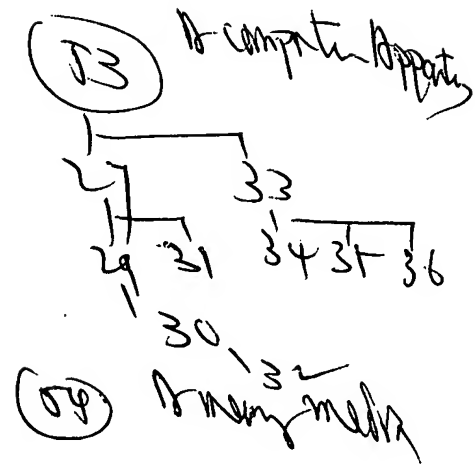 53 A computer Apparatus
2 33
29 31 34 35 36
30
32
54 A memory media